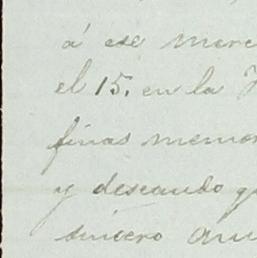 á ese merc
el 15. en la
finas memor
y deseando qu
sincero ami